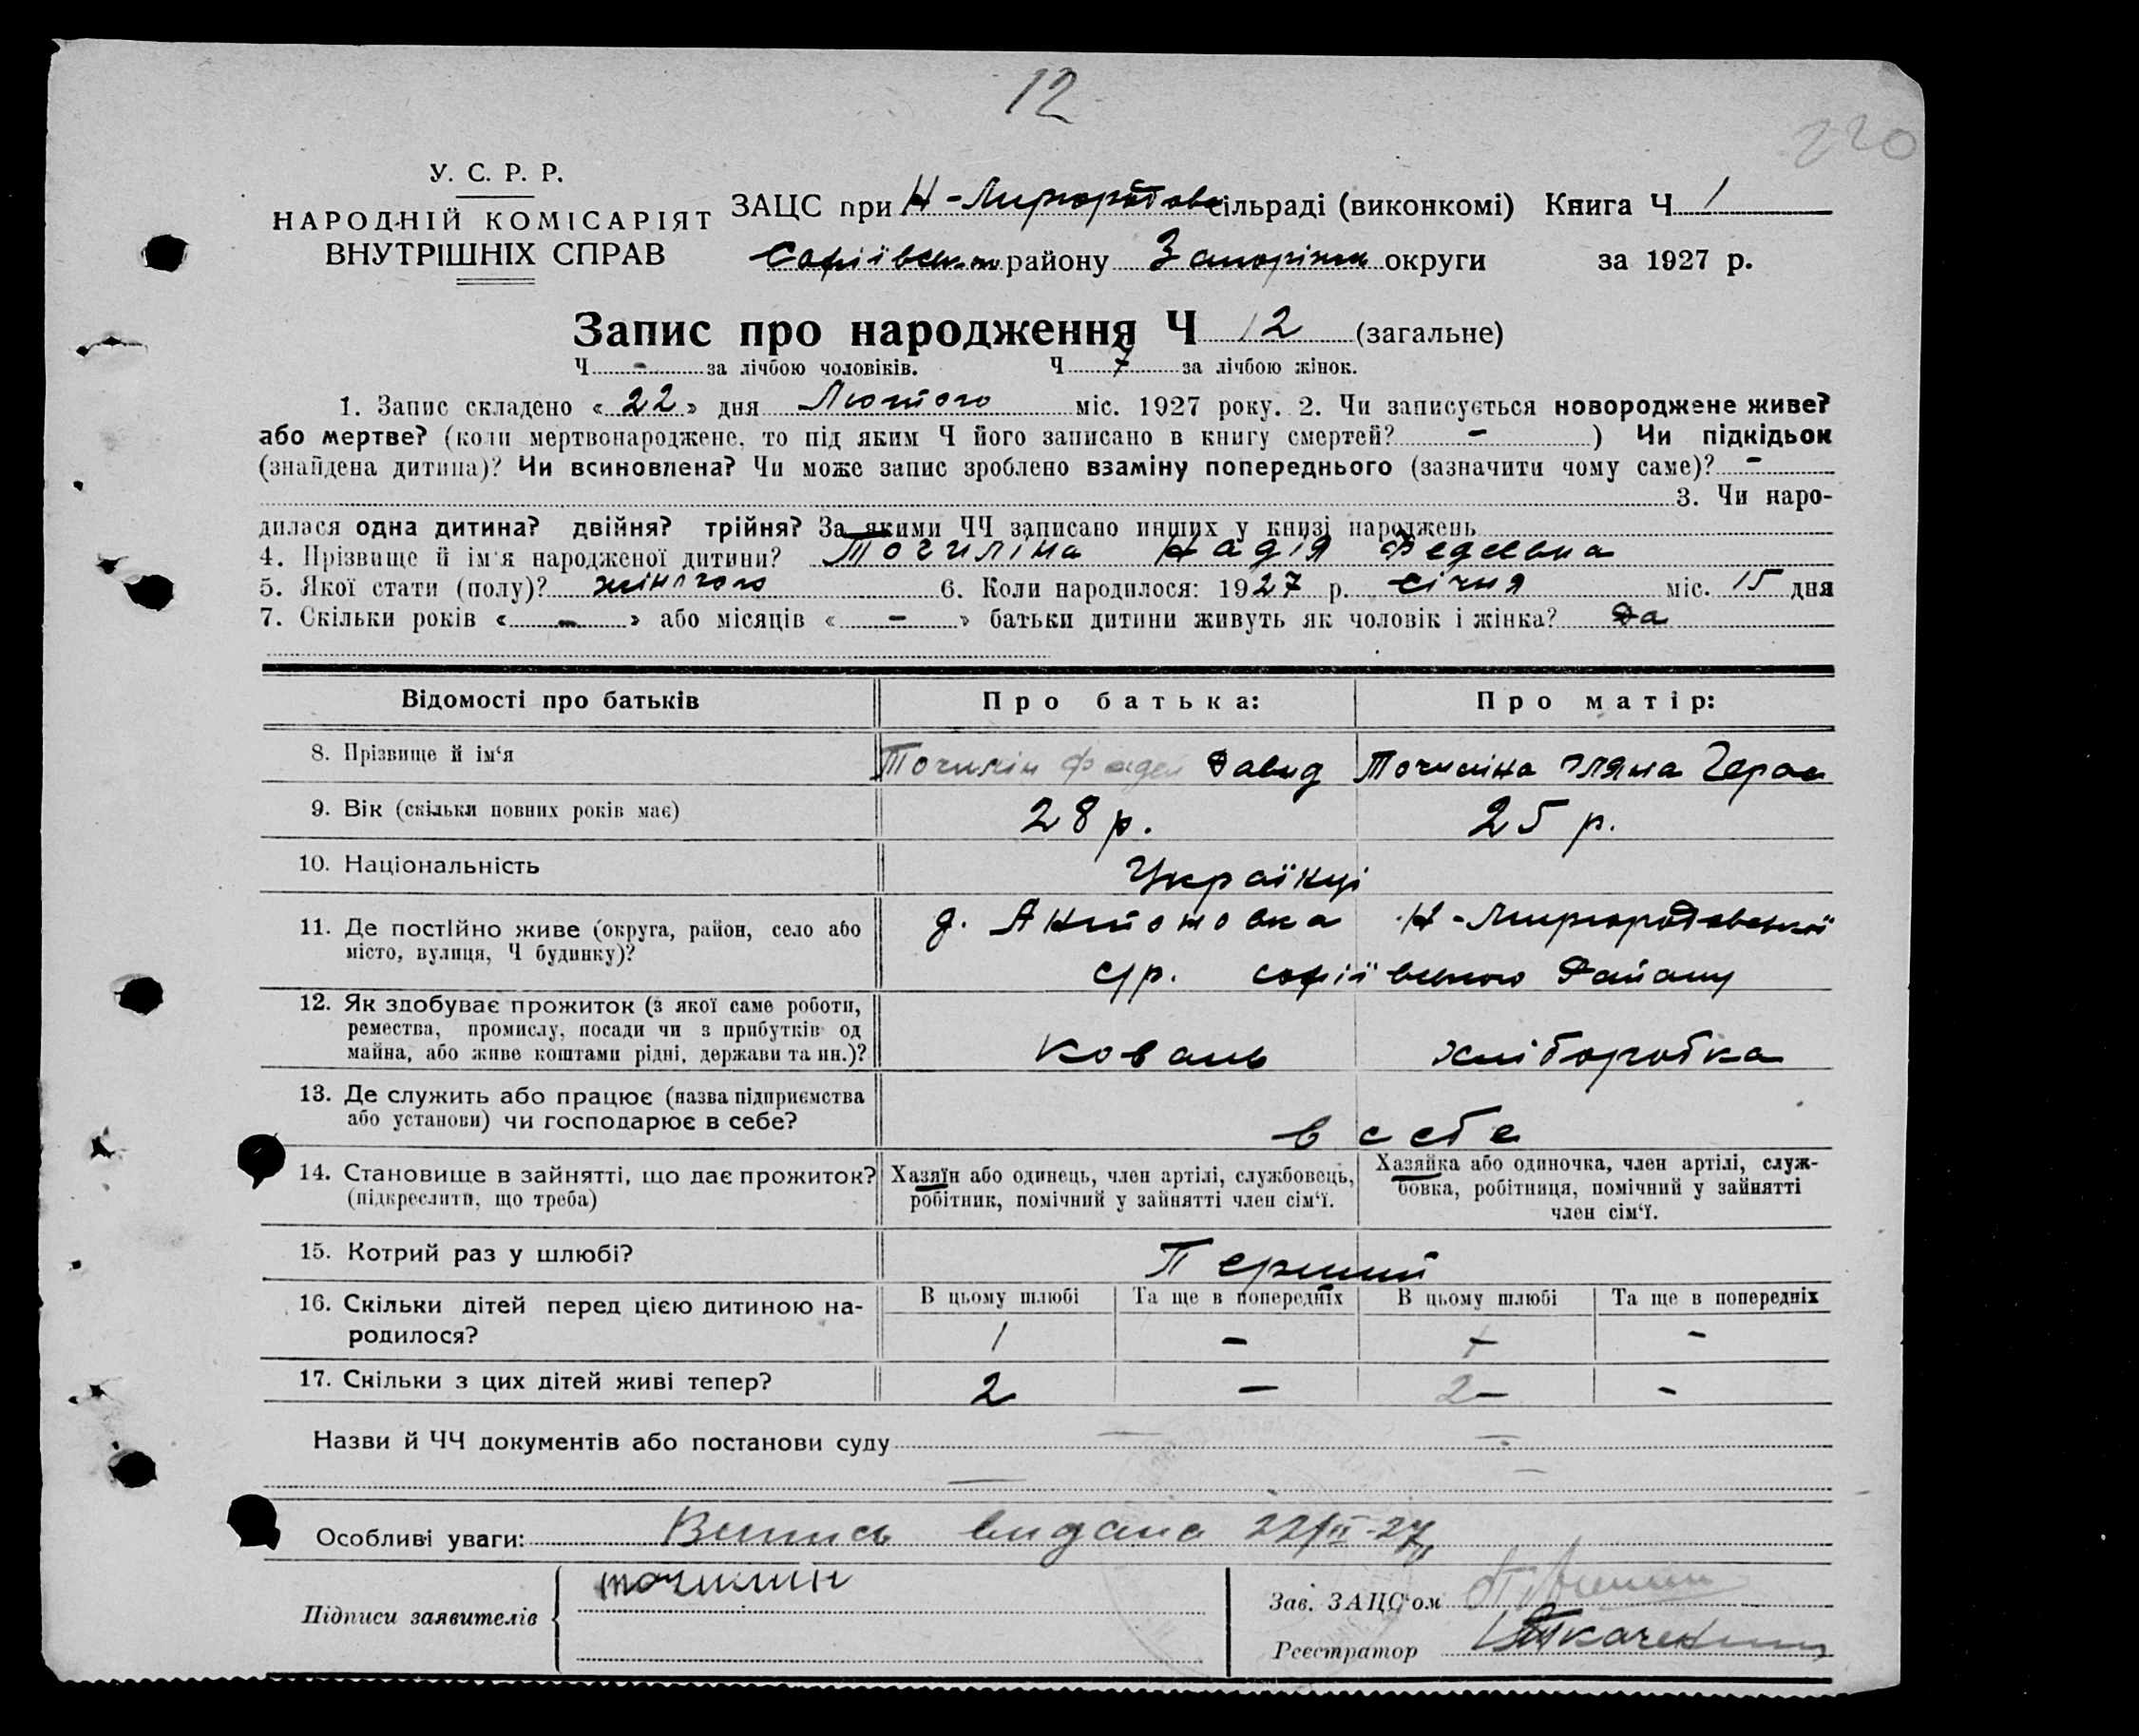 12
220
У. С. Р. Р.
НАРОДНІЙ КОМІСАРІЯТ
ВНУТРІШНІХ СПРАВ
ЗАЦС при Н-Миргородовс сільраді (виконкомі) Книга Ч 1
Софіївськ району Запоріжськ округи за 1927 р.
Запис про народження Ч 12 (загальне)
Ч - за лічбою чоловіків. Ч 7 за лічбою жінок.
1. Запис складено « 22 » дня Лютого міс. 1927 року. 2. Чи записується новороджене живе?
або мертве? (коли мертвонароджене, то під яким Ч його записано в книгу смертей? - ) Чи підкідьок
(знайдена дитина)? Чи всиновлена? Чи може запис зроблено взаміну попереднього (зазначити чому саме)? -
3. Чи наро-
дилася одна дитина? двійня? трійня? За якими ЧЧ записано инших у книзі народжень
4. Прізвище й ім'я народженої дитини? Точиліна Надія Федеевна
5. Якої стати (полу)? жіночого 6. Коли народилося: 1927 р. січня міс. 15 дня
7. Скільки років « - » або місяців « - » батьки дитини живуть як чоловік і жінка? Да
Відомості про батьків Про батька: Про матір:
8. Прізвище й ім‘я Точилін Фадей Давид Точиліна Уляна Герас
9. Вік (скільки повних років має) 28 р. 25 р.
10. Національність Українці
11. Де постійно живе (округа, район, село або д. Антоновка Н-Миргородовської
місто, вулиця, Ч будинку)? с/р. софіївського Району
12. Як здобуває прожиток (з якої саме роботи,
ремества, промислу, посади чи з прибутків од
майна, або живе коштами рідні, держави та ин.)? коваль хліборобка
13. Де служить або працює (назва підприємства
або установи) чи господарює в себе? в себе
14. Становище в зайнятті, що дає прожиток? Хазяїн або одинець, член артілі, службовець, Хазяйка або одиночка, член артілі, служ-
(підкреслити, що треба) робітник, помічний у зайнятті член сім‘ї. бовка, робітниця, помічний у зайнятті
член сім‘ї.
15. Котрий раз у шлюбі? Перший
16. Скільки дітей перед цією дитиною на- В цьому шлюбі Та ще в попередніх В цьому шлюбі Та ще в попередніх
родилося? 1 - -
17. Скільки з цих дітей живі тепер? 2 - 2 -
Назви й ЧЧ документів або постанови суду
Особливі уваги: Випись видана 22/II-27
Підписи заявителів точилин
Зав. ЗАЦС‘ом
Реєстратор Ткаченко